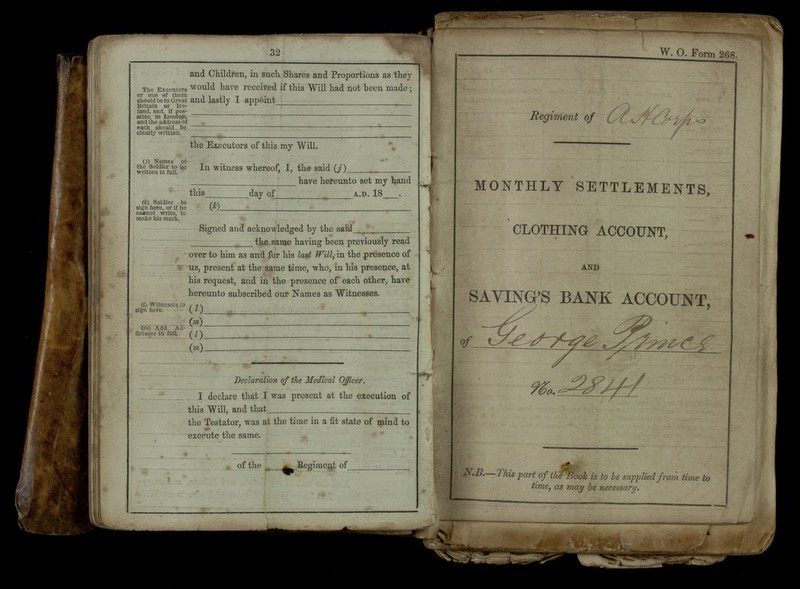 32
and Children, in such Shares and Proportions as they
would have received if this Will had not been made;
and lastly I appoint
The Executors
or one of them
should be in Great
Britain or Ire-
land, and, if pos-
sible, in London,
and the address of
each should be
clearly written.
the Executors of this my Will.
(i) Names of
the Soldier to be
written in full.
In witness whereof, I, the said (j)
have hereunto set my hand
this day of A.D. 18 .
(k) Soldier to
sign here, or if he
cannot write, to
make his mark.
(k)
Signed and acknowledged by the said
the same having been previously read
over to him as and for his last Will, in the presence of
us, present at the same time, who, in his presence, at
his request, and in the presence of each other, have
hereunto subscribed our Names as Witnesses.
(l) Witnesses to
sign here.
(l)
(m)
(m) Add Ad-
dresses in full.
(l)
(m)
Declaration of the Medical Officer.
I declare that I was present at the execution of
this Will, and that
the Testator, was at the time in a fit state of mind to
execute the same.
of the Regiment of
W. O. Form 268.
Regiment of A H Corps
MONTHLY SETTLEMENTS,
CLOTHING ACCOUNT,
AND
SAVING'S BANK ACCOUNT,
of George Prince
No. 2841
N.B.—This part of the Book is to be supplied from time to
time, as may be necessary.